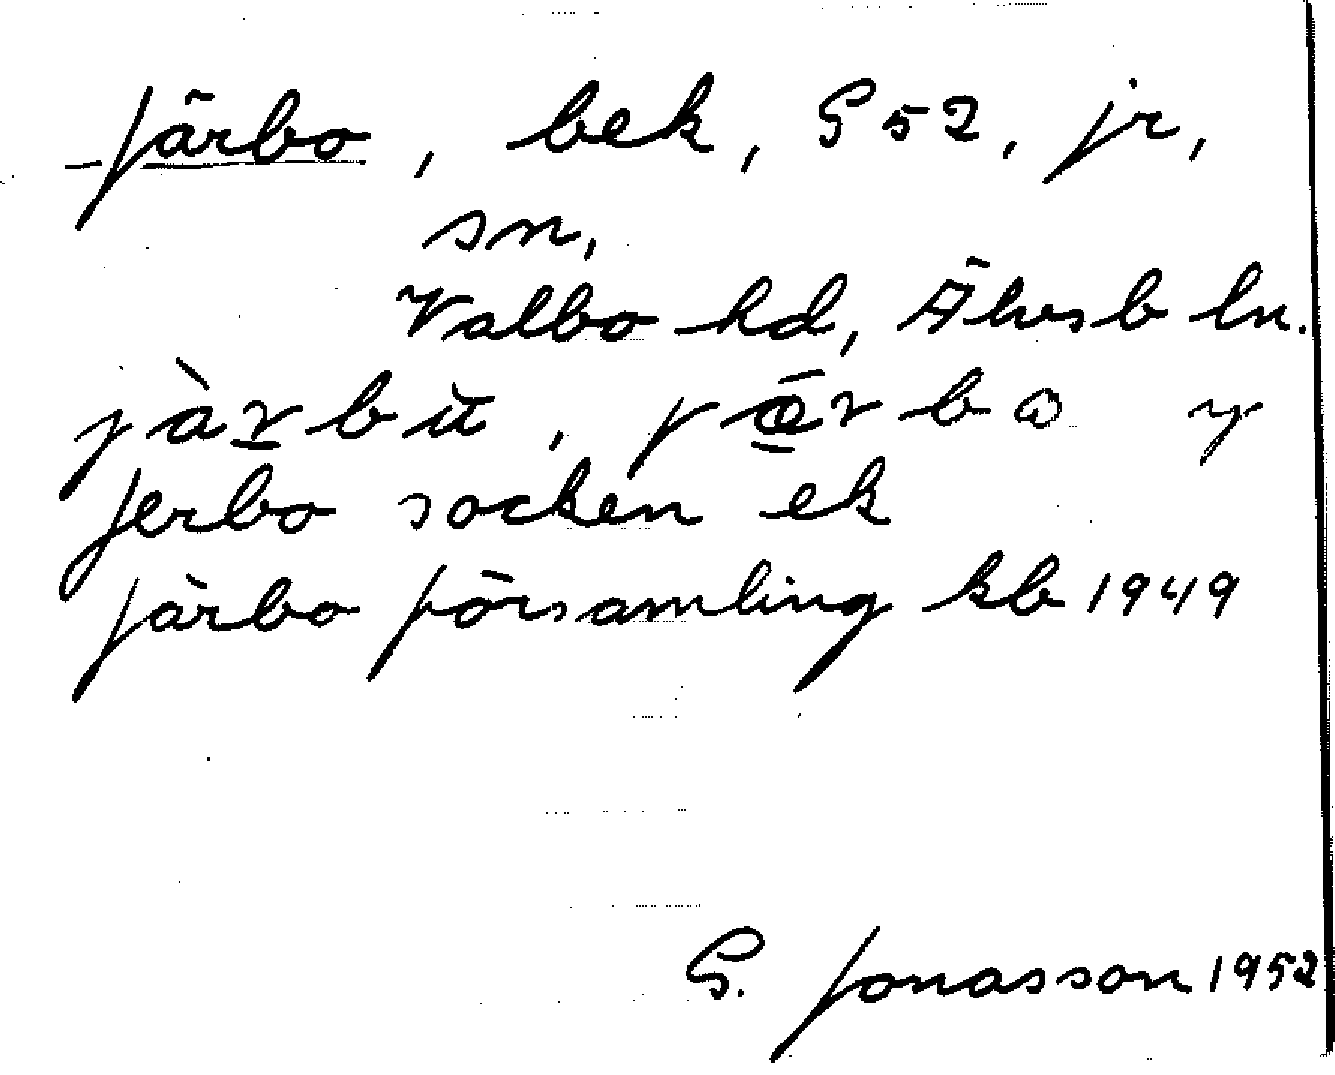 Järbo, bek, G 52, jr,
sn,
Valbo hd, Älvsb ln.
Jerbo socken ek
Järbo församling kb 1949
G. Jonasson 1952